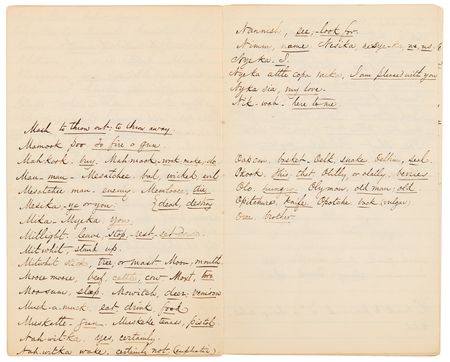 Mash to throw out; to throw away.
Mamook poo to fire a gun.
Mah kook. buy. Mah mook. work. make. do.
Man. man. — Mesatchee. bad, wicked, evil
Mesatchee man. enemy. Memloose, die
Mesika - ye or you. dead, destroy
Mika - Myeka you.
Mitlight leave, stop, rest, set down.
Mitwhit, stand up.
Mitwhit stick, tree, or mast. Moon, month
Moose moose, beef, cattle, cow. Moxt, two
Moosum, sleep. Mowitch, deer, venison
Much-a-muck. eat, drink food
Muskette - gun. Muskete tenas, pistol
Nah wit-ka, yes, certainly.
Nah wit-ka wake, certainly not. (emphatic)
Nannish, see, look for.
Nimm, name. Nesika, we, us
Nyeka. I.
Nyeka atte copa mika, I am pleased with you
Nyka sia, my love.
Nik-wah - here to me.
Oapcan, basket. Oelk, snake Oelhiu, seal.
Okook, this, that Olilly, or olally, berries
Olo hungry. Olyman, old man, old
Opitchure, knife. Opotche back (vulgar)
Ow brother